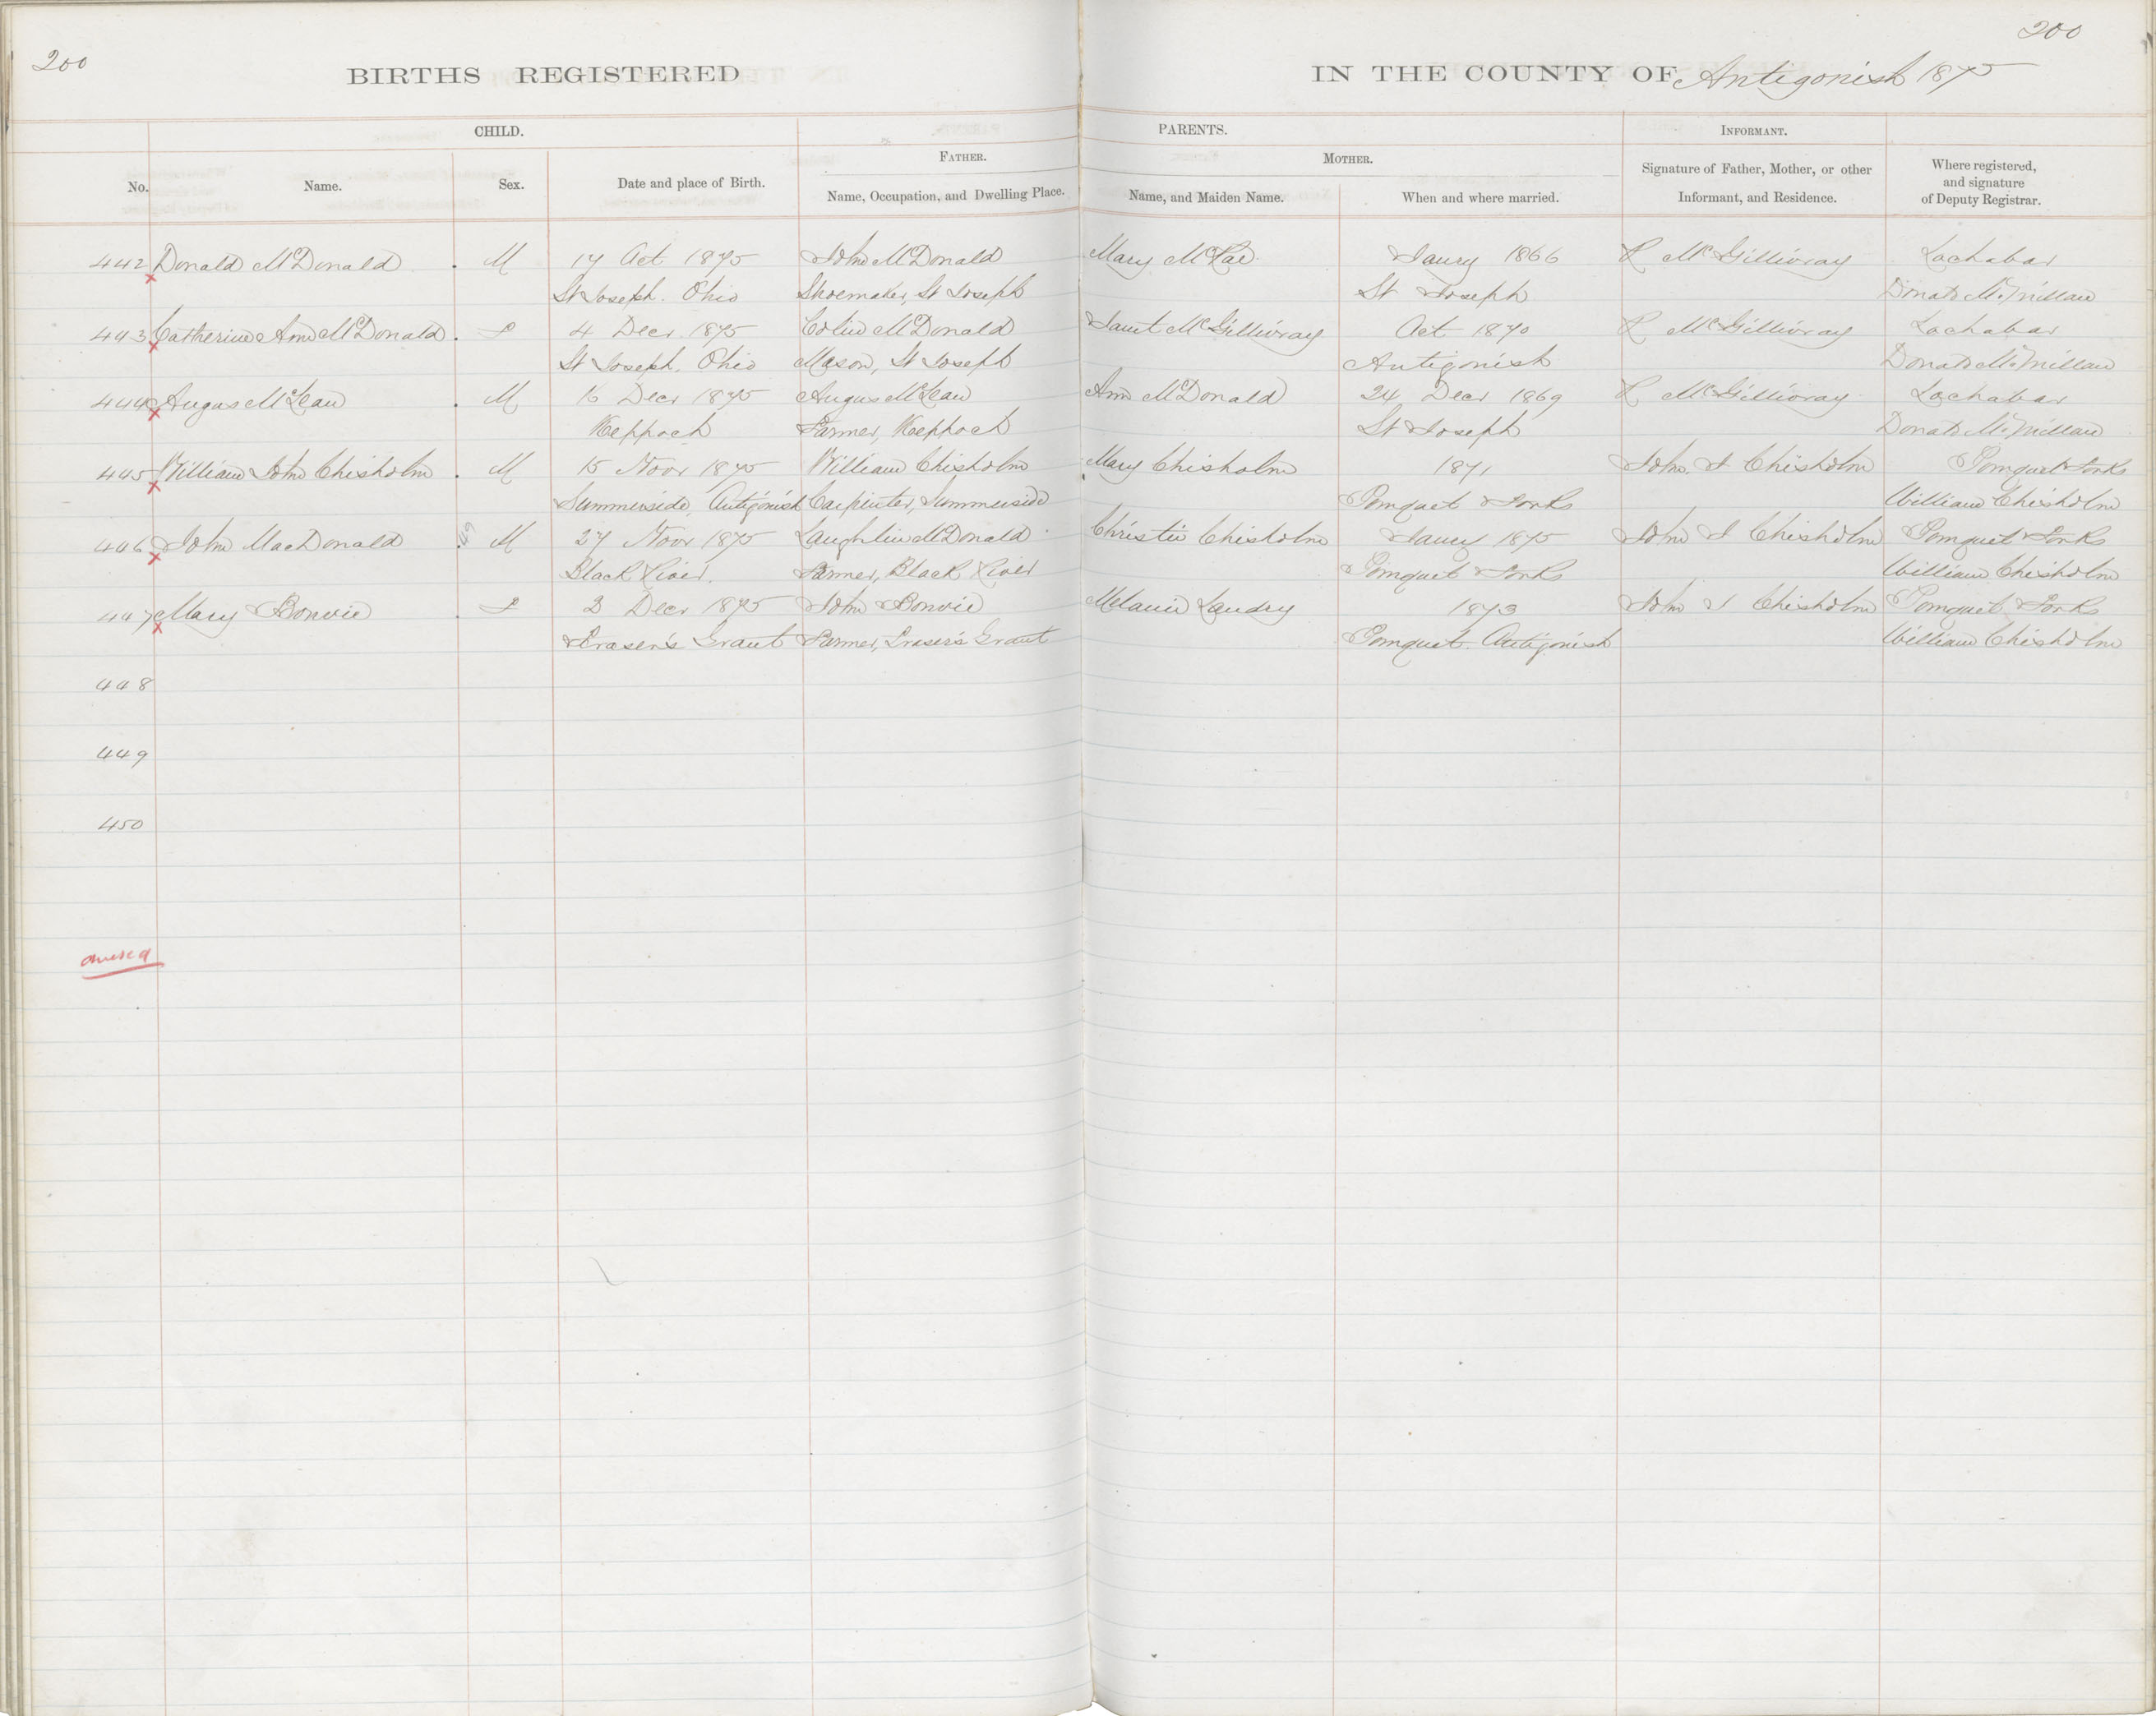 200
200
BIRTHS REGISTERED IN THE COUNTY OF Antigonish 1875
CHILD. PARENTS. INFORMANT.
FATHER. MOTHER.
No. Name. Sex. Date and place of Birth. Name, Occupation, and Dwelling Place. Name, and Maiden Name. When and where married. Signature of Father, Mother, or other Informant, and Residence. Where registered, and signature of Deputy Registrar.
442 Donald McDonald M 17 Oct 1875 John McDonald Mary McRae Jany 1866 R McGillivray Lochabar
St Joseph. Ohio Shoemaker, St Joseph St Joseph Donald McMillan
443 Catherine Ann McDonald F 4 Decr 1875 Colin McDonald Janet McGillivray Oct 1870 R McGillivray Lochabar
St Joseph. Ohio Mason, St Joseph Antigonish Donald McMillan
444 Angus McLean M 16 Decr 1875 Angus McLean Ann McDonald 24 Decr 1869 R McGillivray Lochabar
Keppoch Farmer, Keppoch St Joseph Donald McMillan
445 William John Chisholm M 15 Novr 1875 William Chisholm Mary Chisholm 1871 John J Chisholm Pomquet Forks
Summerside, Antigonish Carpenter, Summerside Pomquet Forks William Chisholm
446 John MacDonald M 27 Novr 1875 Laughlin McDonald Christie Chisholm Jany 1875 John J Chisholm Pomquet Forks
Black River. Farmer, Black River Pomquet Forks William Chisholm
447 Mary Bonvie F 2 Decr 1875 John Bonvie Melanie Landry 1873 John J Chisholm Pomquet Forks
Fraser's Grant Farmer, Fraser's Grant Pomquet. Antigonish William Chisholm
448
449
450